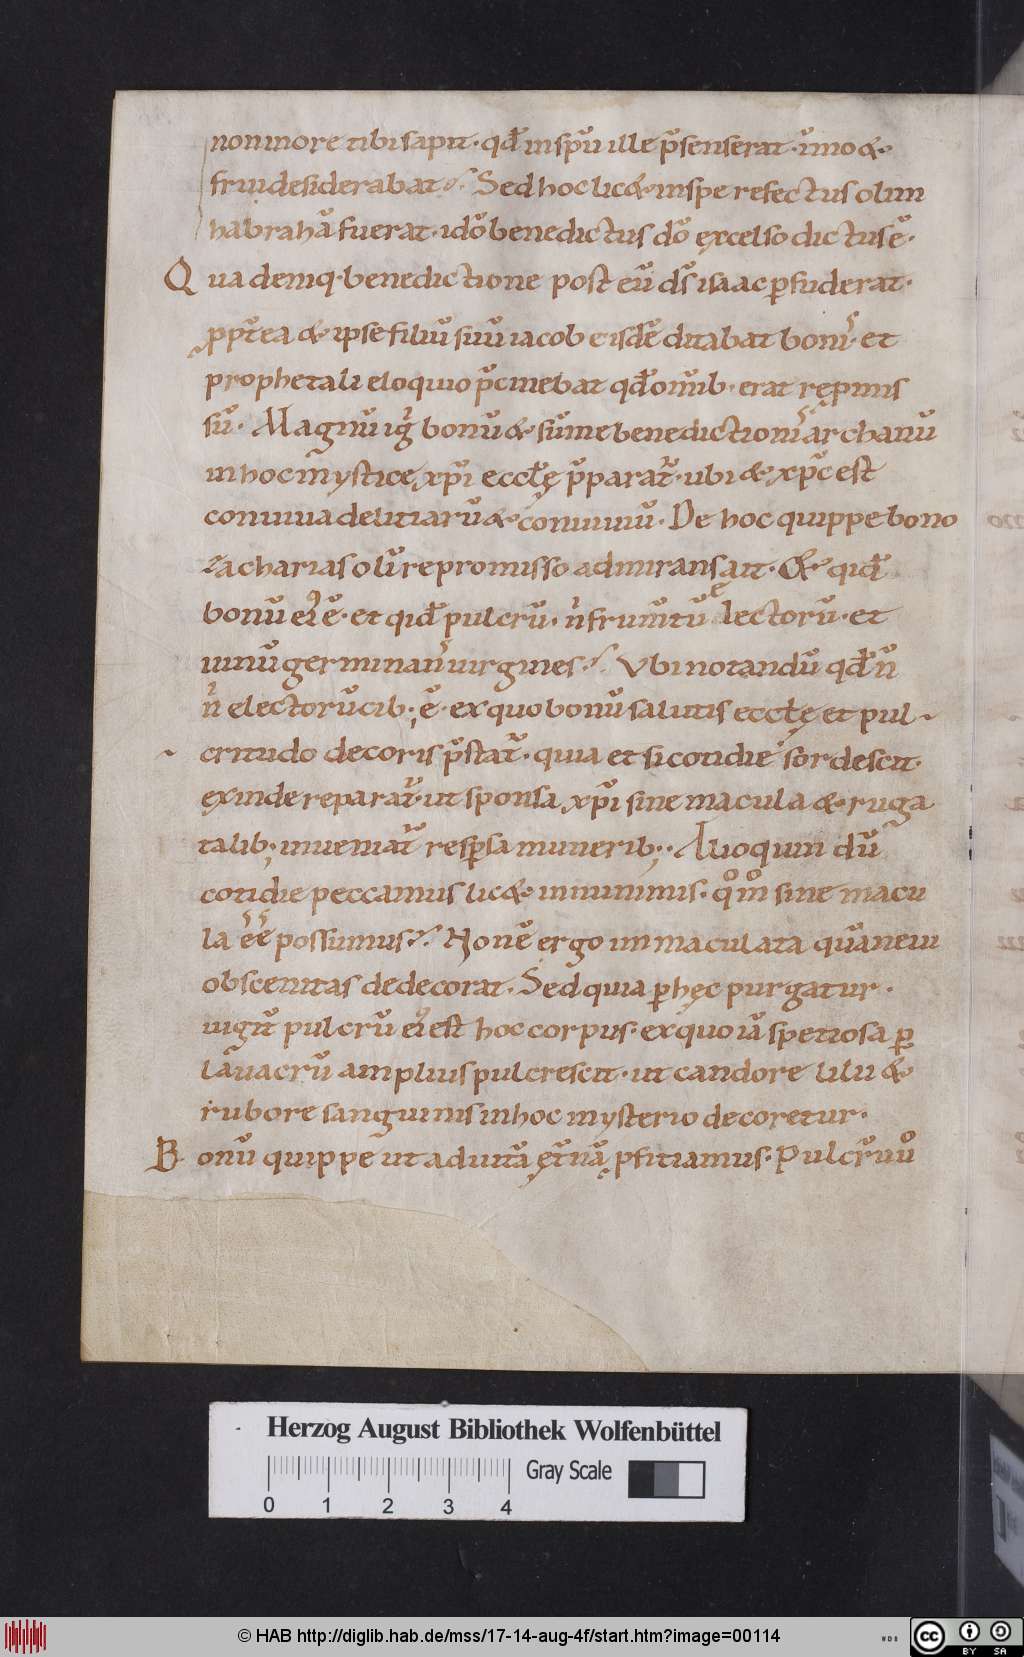 non in ore tibi sapit· qđ in spũ ille p̃senserat· ĩmo &·
frui desiderabat· Sed hoc lic& in spe refectus olim
habrahã fuerat· idõ benedictus dõ excelso dictus ẽ·
Qua demq· benedictione post eũ ds̃ isaac ꝑfuderat·
ꝓpt̃ea & ipse filiũ suũ iacob eisdẽ ditabat bonis· et
prophetali eloquio p̃cinebat qđ omnib· erat rępmis
sũ· Magnũ igr̃ bonũ & sũme benedictionis archanũ
in hoc mystice xp̃i eccłę p̃parat̃· ubi & xp̃c est
conuiua delitiarũ & conuiuiũ· De hoc quippe bono
zacharias olĩ repromisso admirans ait· & qid̃
bonũ ei᷒ ẽ· et qid̃ pulcrũ· ñ frumtũ electorũ· et
uinũ germinans uirgines· Vbi notandũ qđ ñ
ñ electorũ cib; ẽ· ex quo bonũ salutis eccłę et pul-
critudo decoris p̃stat̃· quia et si cotidie sordescit·
exinde reparat̃· ut sponsa xp̃i sine macula & ruga
talib; inueniat̃ respersa munerib;· Alioquin dũ
cotidie peccamus lic& in minimis· qͦmͦ sine macu
la eẽ possumus· Non ẽ ergo inmaculata quã neui
obscenitas dedecorat· Sed quia ꝑ hęc purgatur·
uigit̃ pulcrũ ei᷒ est hoc corpus· ex quo iã spetiosa ꝑ
lauacrũ amplius pulcrescit· ut candore lilii &
rubore sanguinis in hoc mysterio decoretur·
Bonũ quippe ut ad uitã ęt̃nã ꝓfitiamus· Pulcrũ uͦ
Herzog August Bibliothek Wolfenbüttel
0 1 2 3 4 Gray Scale
© HAB http://diglib.hab.de/mss/17-14-aug-4f/start.htm?image=00114
WDB cc BY SA